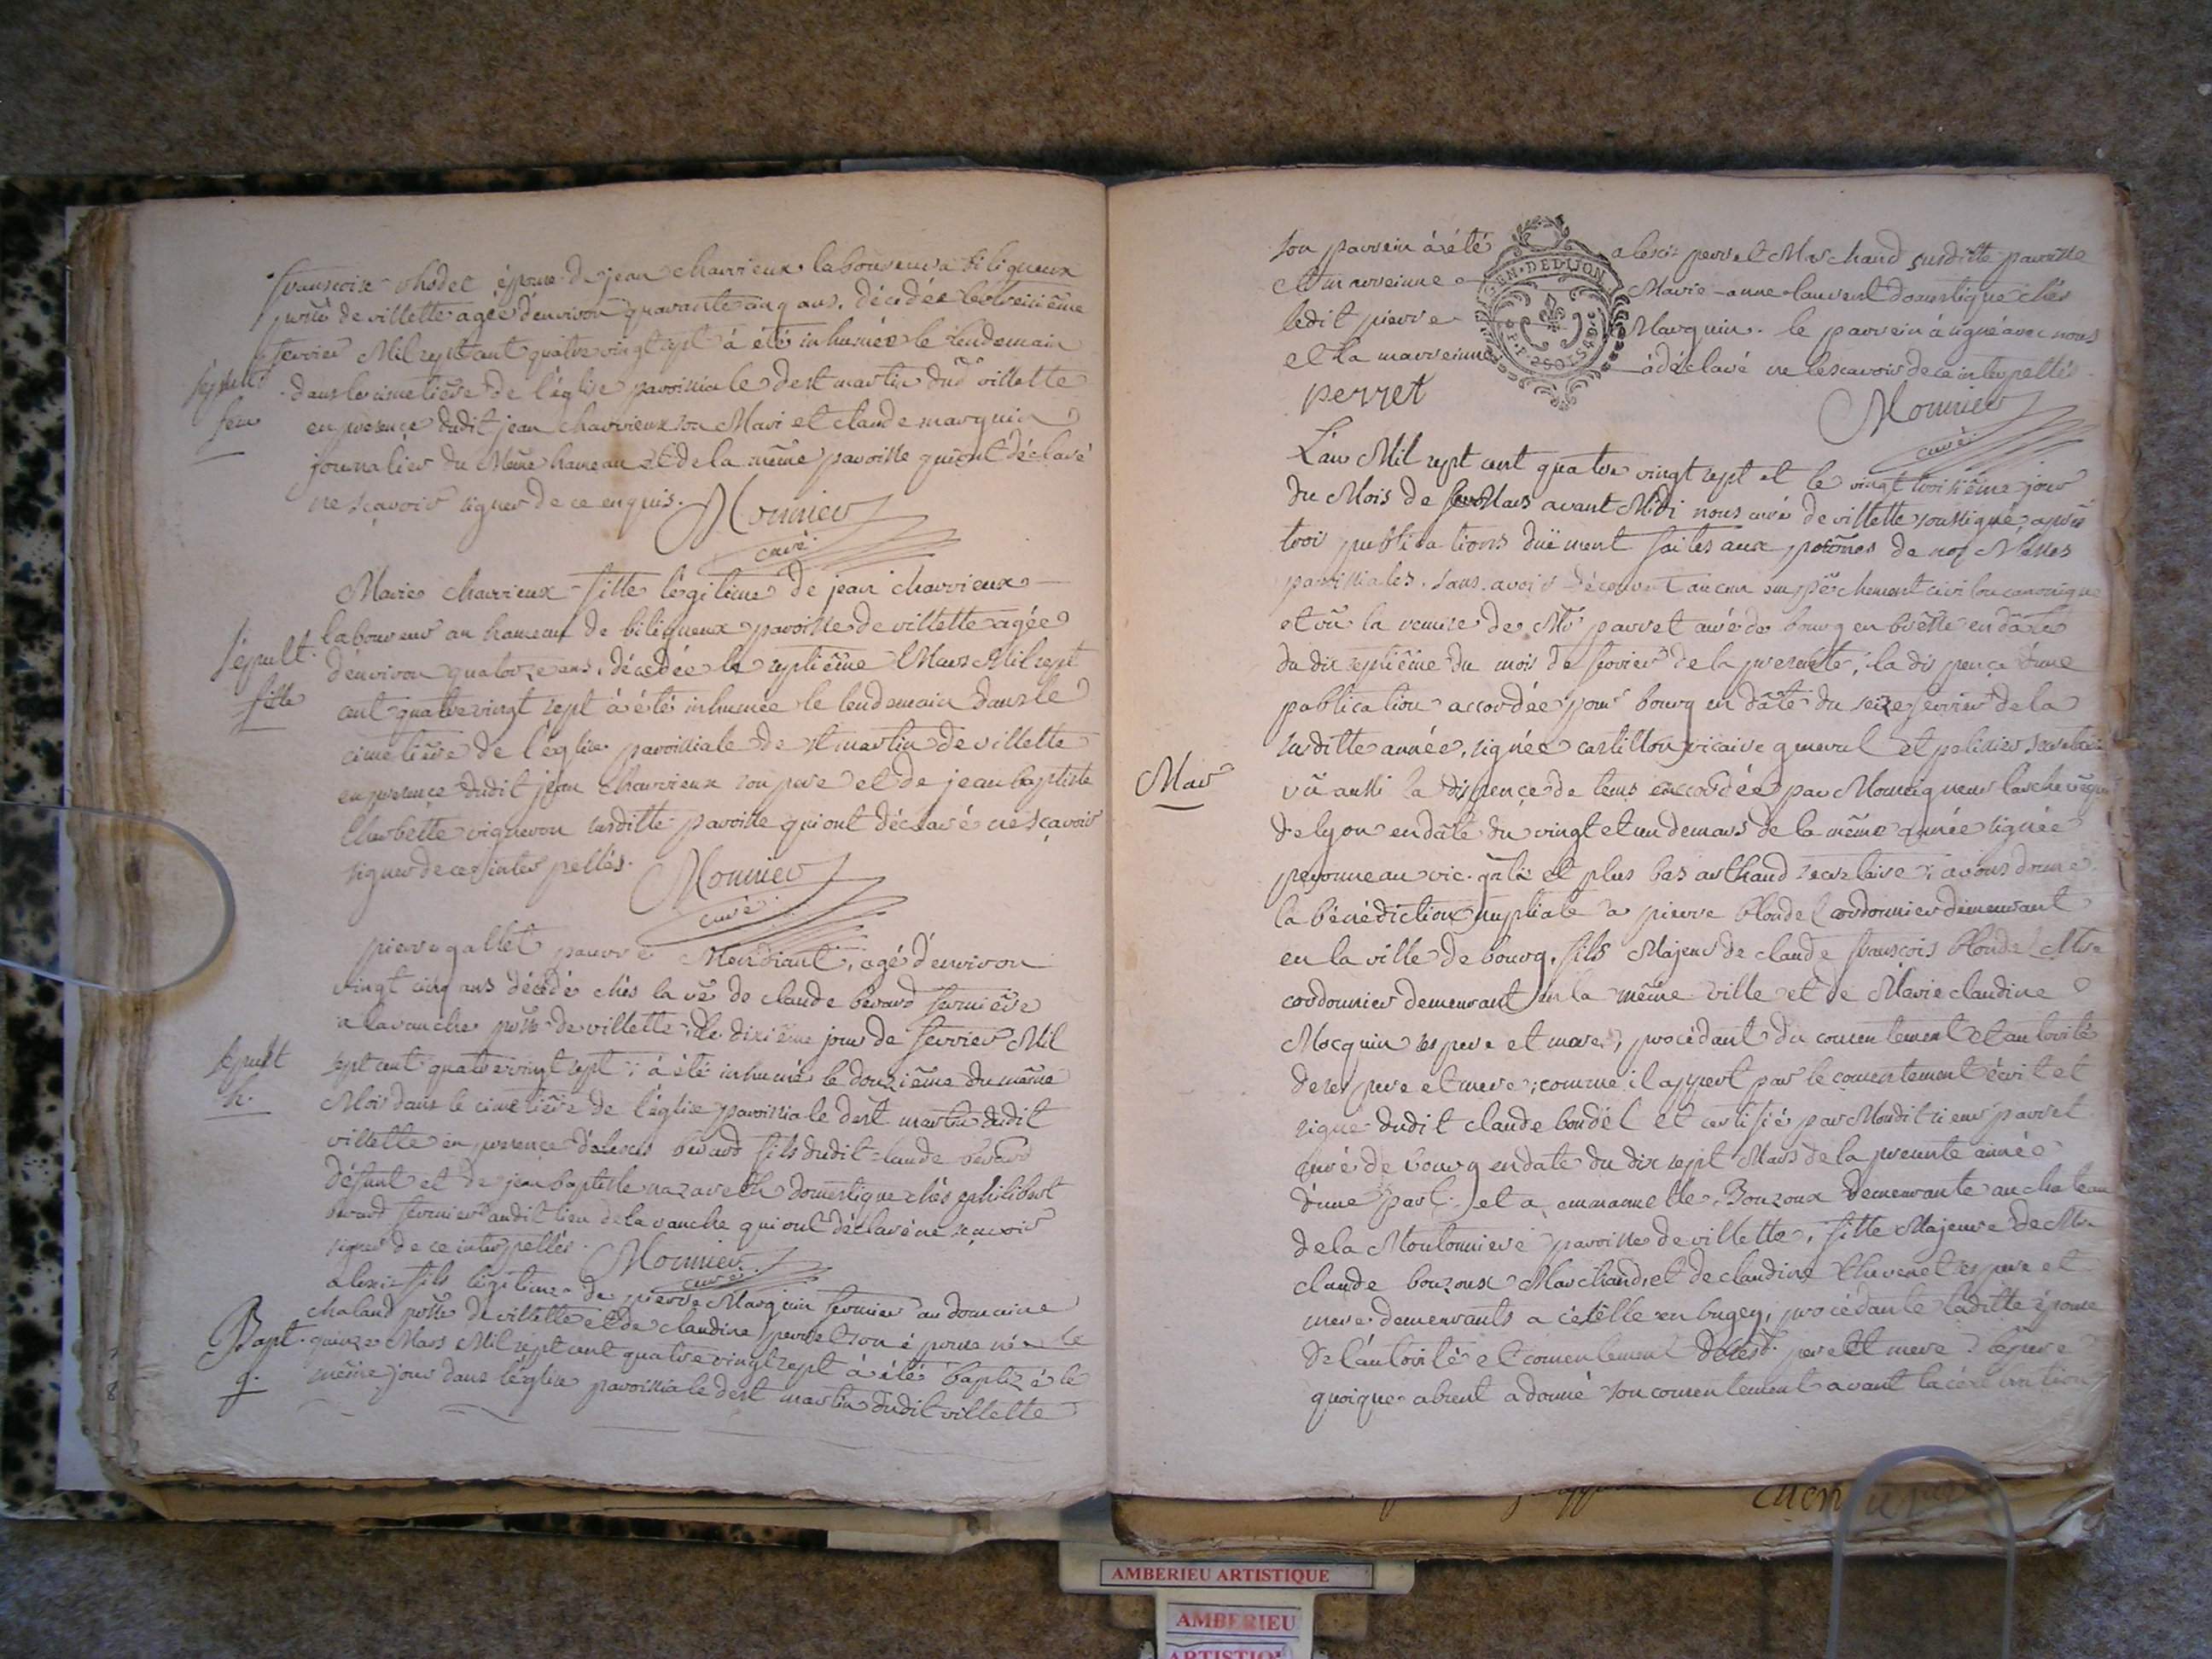 françoise épouse de jean charrieux laboureur a biligneux
de villette agée d'environ quarante cinq ans, décédée le
fevrier Mil sept cent quatre vingt sept à été inhumée le lendemain
dans le cimetiere de l'église paroissiale de st martin dud villette
en présence dudit jean charrieux son Mari et claude marquin
journalier du Même hameau et de la même paroisse qui ont déclaré
ne sçavoir signer de ce enquis.
Monnier
curé
Marie charrieux fille légitime de jean charrieux
Sépult. laboureur au hameau de biligneux paroisse de villette agée
d'environ quatorze ans, décédée le septiême Mars Mil sept
fille
cent quatre vingt sept à été inhumée le lendemain dans le
cimetière de l'église paroissiale de st martin de villette
en presence dudit jean charrieux son pere et de jean baptiste
vigneron susditte paroisse qui ont déclaré ne sçavoir
signer de ce interpellés.
Monnier
curé
pierre gallet pauvre Mendiant, agé d'environ
vingt cinq ans décédé chés la vê de claude bérard fermière
a lavanche psse de villette, le dixième jour de fevrier Mil
Sepult
sept cent quatre vingt sept ; à été inhumé le douzième du même
h.
Mois dans le cimetière de l'église paroissiale de st martin dudit
villette en presence d'alexis bérard fils dudit claude bérard
défunt et de jean baptiste nazareth domestique chés philibert
bérard fermier audit lieu de lavanche qui ont déclaré ne sçavoir
signer de ce interpellés.
Monnier
curé
alexis fils légitime de pierre Marquin fermier au domaine
chaland psse de villette et de claudine perret son épouse né le
Bapt. quinze Mars Mil sept cent quatre vingt sept à été baptizé le
g. même jour dans l'église paroissiale de st martin dudit villette
son parrein à été alexis perret Marchand susditte paroisse
et marreinne Marie-anne laurent domestique chés
GEN. DE DIJON
ledit pierre Marquin. le parrein à signé avec nous
et la marreinne à déclaré ne le scavoir de ce interpellés
perret
Monnier
curé
L'an Mil sept cent quatre vingt sept et le vingt troisiême jour
du Mois de Mars avant Midi nous curé de villette soussigné, après
trois publications duëment faites aux prônes de nos Messes
paroissiales, sans avoir découvert aucun empêchement civil ou canonique
et vû la remise de Mr parret curé de bourg en bresse en date
du dix septiême du mois de fevrier de la presente, la dispence d'une
publication accordée pour bourg en date du seize fevrier de la
susditte année, signée castillon vicaire general et
Mar
vû aussi la dispence de tems accordée par Monseigneur l'archevêque
de lyon en date du vingt et un de mars de la même année signée
vic. gnl. et plus bas arthaud secretaire ; avons donné
la bénédiction nuptiale a pierre blondel cordonnier demeurant
en la ville de bourg, fils Majeur de claude françois blondel Mtre
cordonnier demeurant en la même ville et de Marie claudine
Mocquin ses pere et mere, procédant du consentement et autorité
de ses pere et mere ; comme il appert par le consentement écrit et
signé dudit claude bondél et certifié par Mondit sieur parret
curé de bourg en date du dix sept Mars de la presente année
d'une part ; et a emmanuelle Bouzoux demeurante au chateau
de la Moutonniere paroisse de villette, fille Majeure de Mr
claude bouzoux Marchand, et de claudine thevenet ses pere et
mere demeurants a en bugey, procédante laditte épouse
de l'autorité et consentement de sesd. pere et mere : le pere
quoique absent a donné son consentement avant la
AMBERIEU ARTISTIQUE
AMBERIEU
ARTISTIQUE